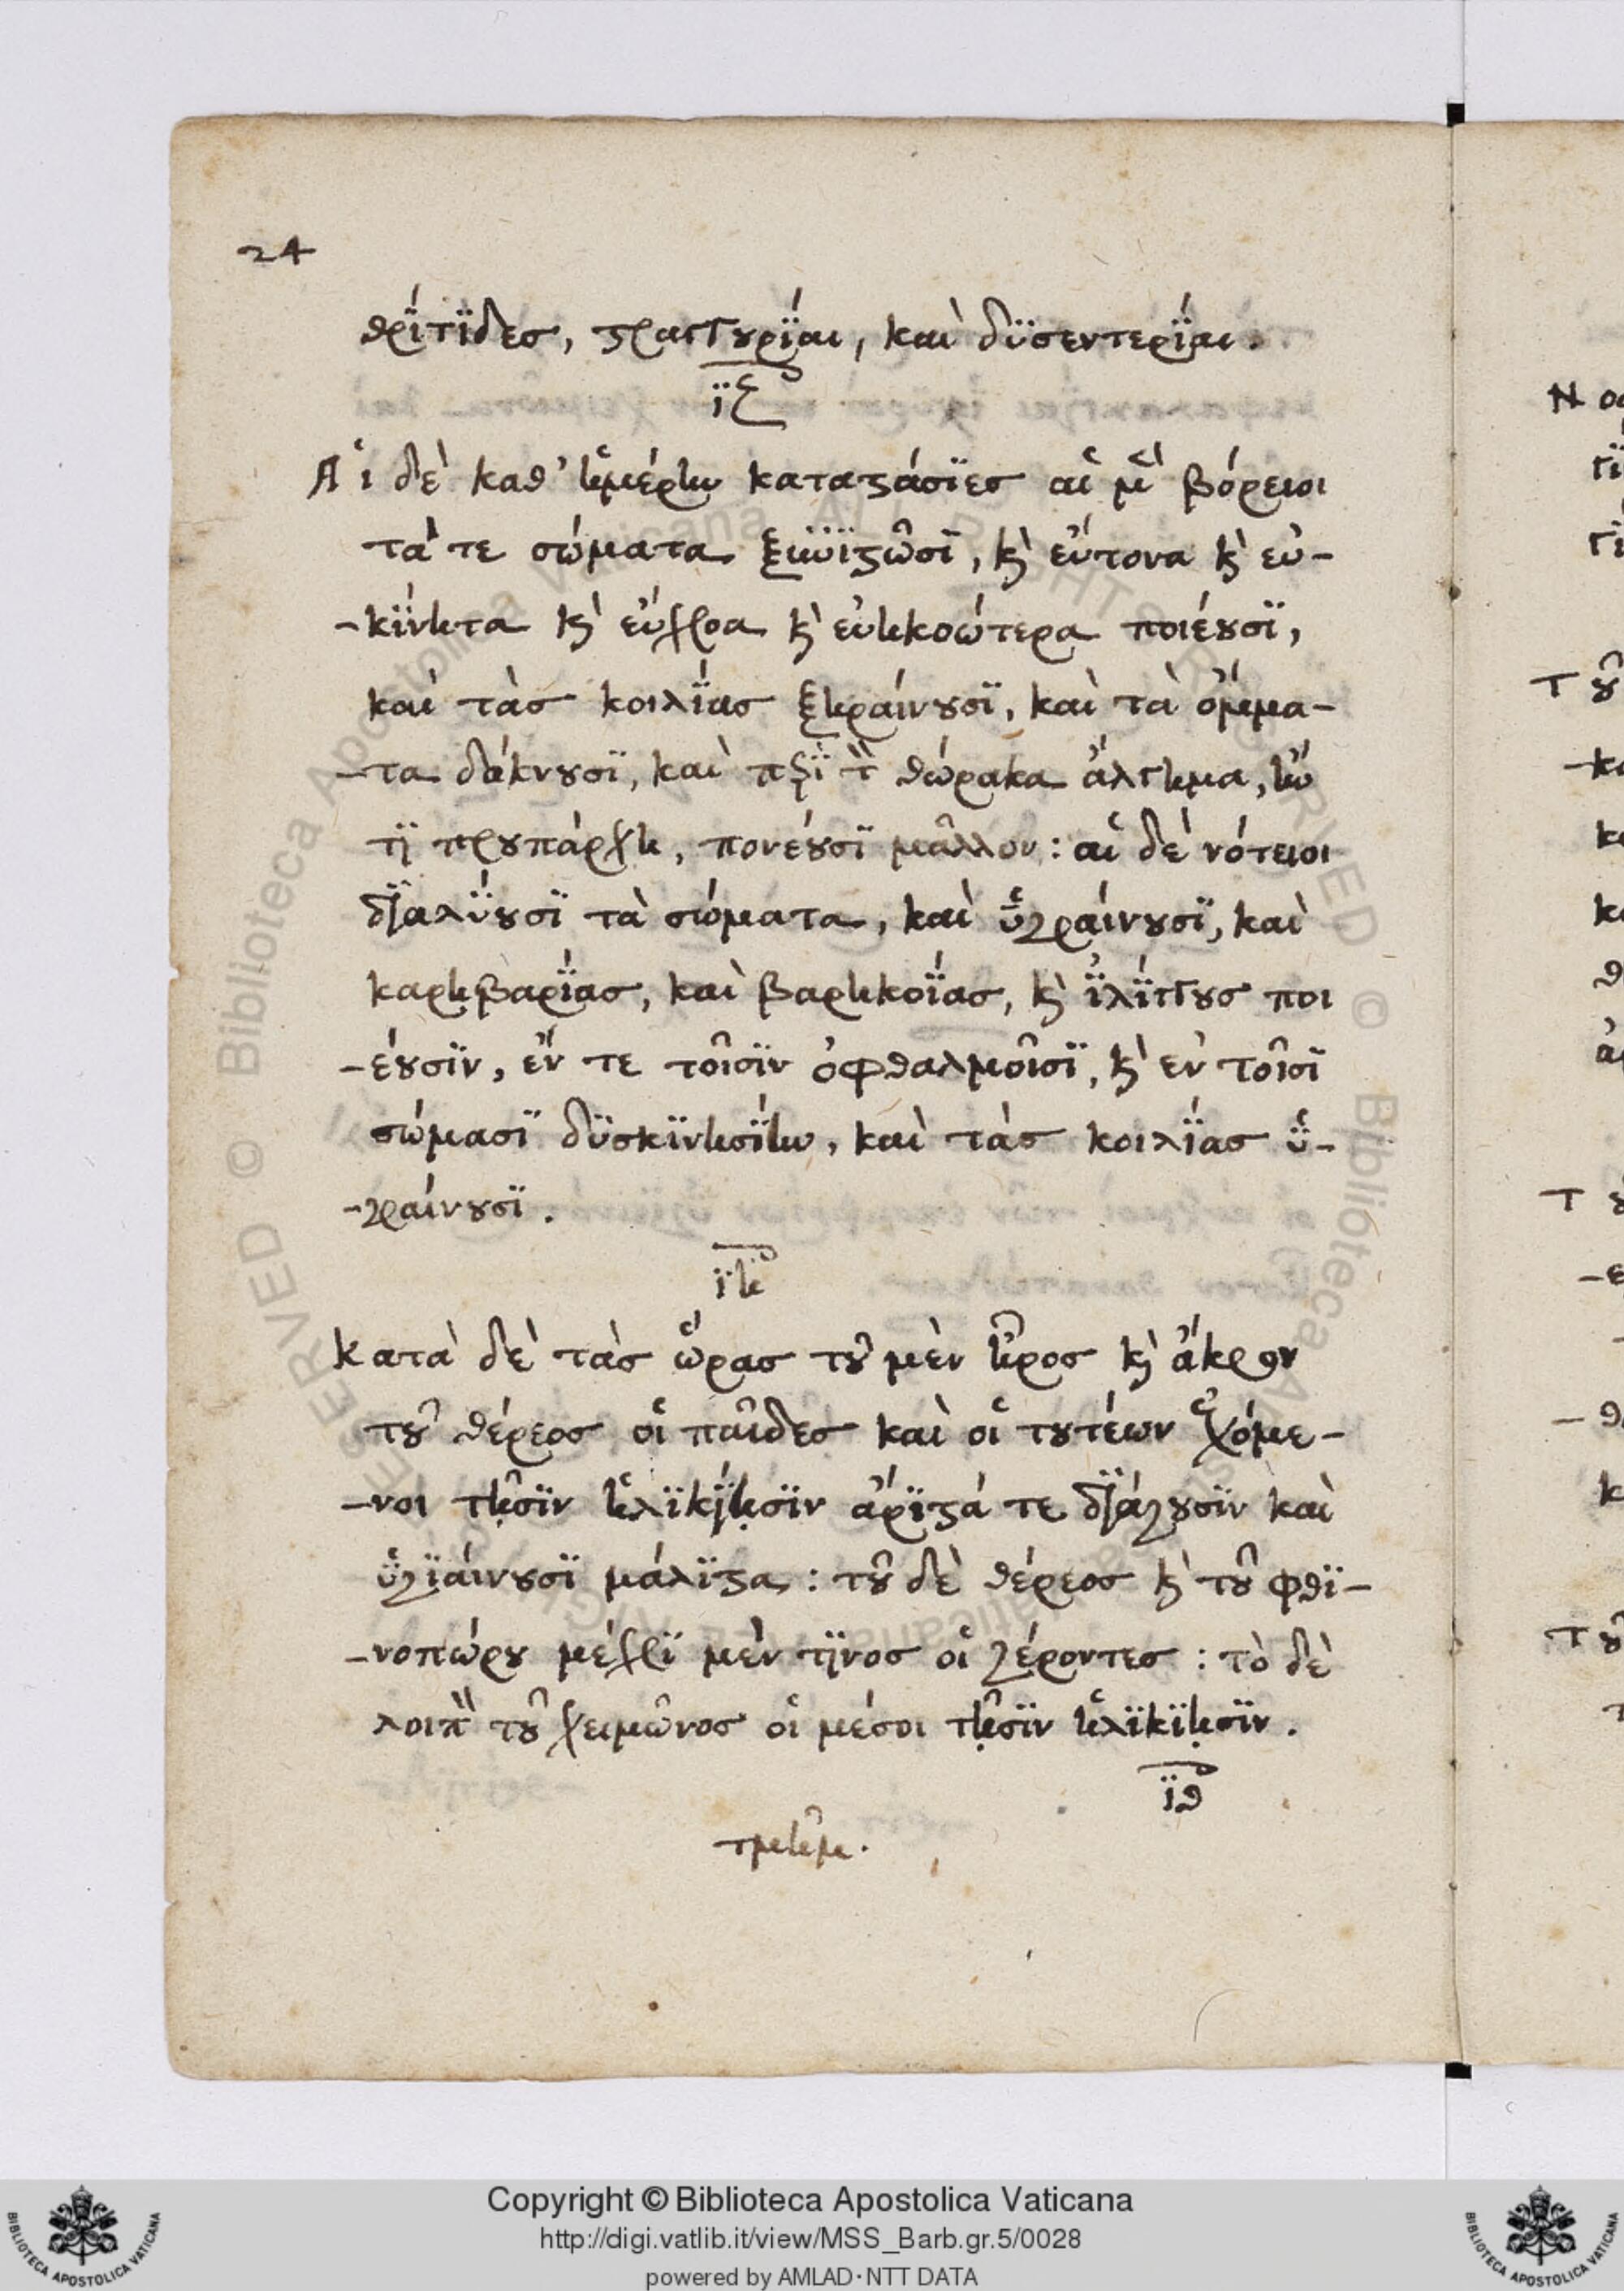 24
θρίτιδες, στραγγουρίαι, καὶ δυσεντερίαι.
ιζ
Αἱ δὲ καθ' ἡμέρην καταστάσιες αἱ μὲν βόρειοι
τά τε σώματα ξυνιστῶσι, κὶ εὔτονα κὶ εὐ-
-κίνητα κὶ εὔχροα κὶ εὐηκοώτερα ποιέουσι,
καὶ τὰς κοιλίας ξηραίνουσι, καὶ τὰ ὄμμα-
-τα δάκνουσι, καὶ περὶ τὸν θώρακα ἄλγημα, ἢν
τι προυπάρχῃ, πονέουσι μᾶλλον: αἱ δὲ νότειοι
διαλύουσι τὰ σώματα, καὶ ὑγραίνουσι, καὶ
καρηβαρίας, καὶ βαρηκοΐας, κὶ ἰλίγγους ποι
-έουσιν, ἔν τε τοῖσιν ὀφθαλμοῖσι, κὶ ἐν τοῖσι
σώμασι δυσκινησίην, καὶ τὰς κοιλίας ὑ-
-γραίνουσι.
ιη
Κατὰ δὲ τὰς ὥρας τοῦ μὲν ἦρος κὶ ἄκρον
τοῦ θέρεος οἱ παῖδες καὶ οἱ τουτέων ἐχόμε-
-νοι τῇσιν ἡλικίῃσιν ἄριστά τε διάγουσιν καὶ
ὑγιαίνουσι μάλιστα: τοῦ δὲ θέρεος κὶ τοῦ φθι-
-νοπώρου μέχρι μέν τινος οἱ γέροντες: τὸ δὲ
λοιπὸν τοῦ χειμῶνος οἱ μέσοι τῇσιν ἡλικίῃσιν.
ιθ
τμῆμ.
Copyright © Biblioteca Apostolica Vaticana
http://digi.vatlib.it/view/MSS_Barb.gr.5/0028
powered by AMLAD·NTT DATA